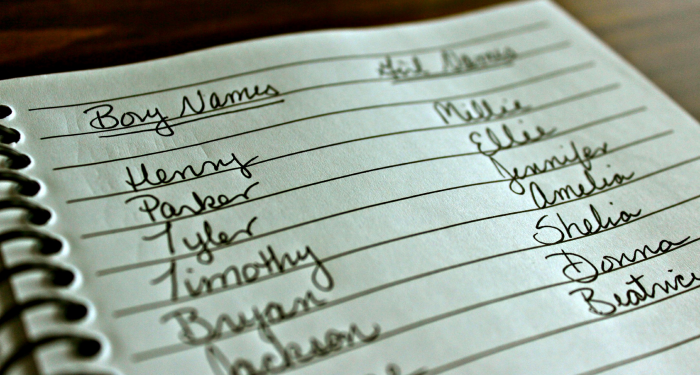 Boy Names
Girl Names
Henry
Parker
Tyler
Timothy
Bryan
Jackson
Millie
Ellie
Jennifer
Amelia
Shelia
Donna
Beatrice